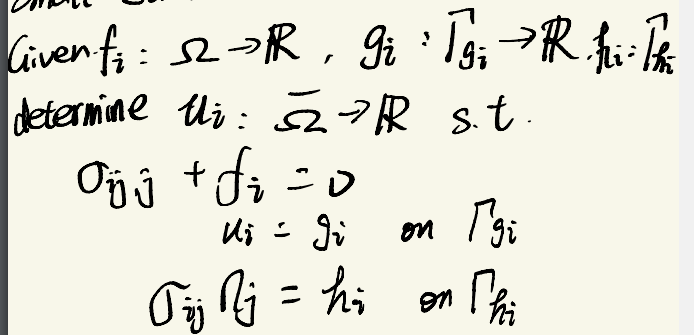 Given fi : Ω → ℝ , gi : Γgi → ℝ, hi : Γhi
determine ui : Ω̅ → ℝ s.t.
σij,j + fi = 0
ui = gi on Γgi
σij nj = hi on Γhi